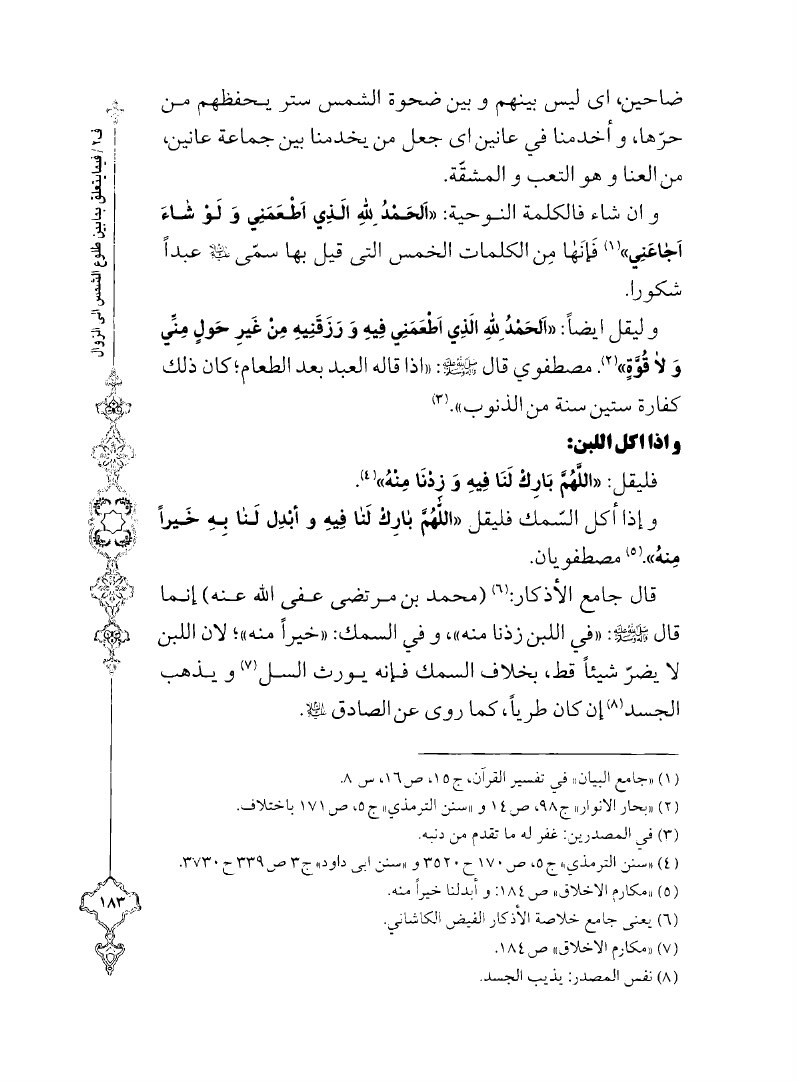 ضاحين، اى ليس بينهم و بين ضحوة الشمس ستر يحفظهم من
حرّها، و أخدمنا في عانين اى جعل من يخدمنا بين جماعة عانين،
من العنا و هو التعب و المشقّة.
و ان شاء فالكلمة النوحية: «اَلحَمْدُ لِلّهِ الَّذِي اَطْعَمَنِي وَ لَوْ شاءَ
اَجاعَنِي»(١) فَإنّها مِن الكلمات الخمس التى قيل بها سمّى عبداً
شكورا.
و ليقل ايضاً: «اَلحَمْدُ لِلّهِ الَّذِي اَطْعَمَنِي فِيهِ وَ رَزَقَنِيهِ مِنْ غَيرِ حَولٍ مِنِّي
وَ لاٰ قُوَّةٍ»(٢). مصطفوي قال ﷺ: «اذا قاله العبد بعد الطعام؛ كان ذلك
كفارة ستين سنة من الذنوب».(٣)
و اذا اكل اللبن:
فليقل: «اللَّهُمَّ بَارِكْ لَنَا فيهِ وَ زِدْنَا مِنْهُ»(٤).
و إذا أكل السّمك فليقل «اللّٰهُمَّ بٰارِكْ لَنٰا فِيهِ و أبْدِل لَنٰا بِهِ خَيراً
مِنهُ».(٥) مصطفويان.
قال جامع الأذكار:(٦) (محمد بن مرتضى عفى الله عنه) إنما
قال ﷺ: «في اللبن زدنا منه»، و في السمك: «خيراً منه»؛ لان اللبن
لا يضرّ شيئاً قط، بخلاف السمك فإنه يورث السل(٧) و يذهب
الجسد(٨) إن كان طرياً، كما روى عن الصادق .
(١) «جامع البيان» في تفسير القرآن، ج١٥، ص١٦، س ٨.
(٢) «بحار الانوار» ج٩٨، ص١٤ و «سنن الترمذي» ج٥، ص١٧١ باختلاف.
(٣) في المصدرين: غفر له ما تقدم من ذنبه.
(٤) «سنن الترمذي» ج٥، ص١٧٠ ح٣٥٢٠ و «سنن ابى داود» ج٣ ص٣٣٩ ح٣٧٣٠.
(٥) «مكارم الاخلاق» ص١٨٤: و أبدلنا خيراً منه.
(٦) يعنى جامع خلاصة الأذكار الفيض الكاشاني.
(٧) «مكارم الاخلاق» ص١٨٤.
(٨) نفس المصدر: يذيب الجسد.
ف٢ / فيما يتعلق بما بين طلوع الشمس الى الزوال
١٨٣